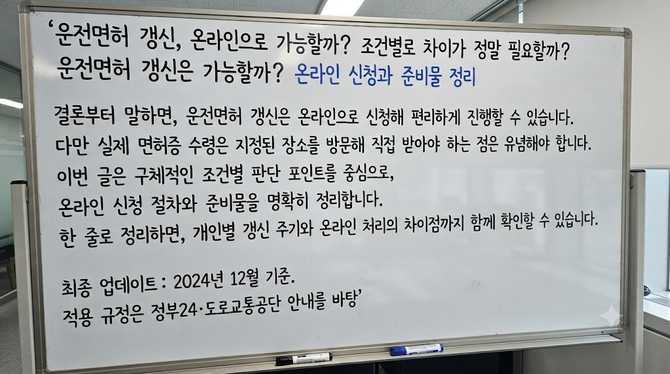 ‘운전면허 갱신, 온라인으로 가능할까? 조건별로 차이가 정말 필요할까?
운전면허 갱신은 가능할까? 온라인 신청과 준비물 정리
결론부터 말하면, 운전면허 갱신은 온라인으로 신청해 편리하게 진행할 수 있습니다.
다만 실제 면허증 수령은 지정된 장소를 방문해 직접 받아야 하는 점은 유념해야 합니다.
이번 글은 구체적인 조건별 판단 포인트를 중심으로,
온라인 신청 절차와 준비물을 명확히 정리합니다.
한 줄로 정리하면, 개인별 갱신 주기와 온라인 처리의 차이점까지 함께 확인할 수 있습니다.
최종 업데이트 : 2024년 12월 기준.
적용 규정은 정부24·도로교통공단 안내를 바탕’